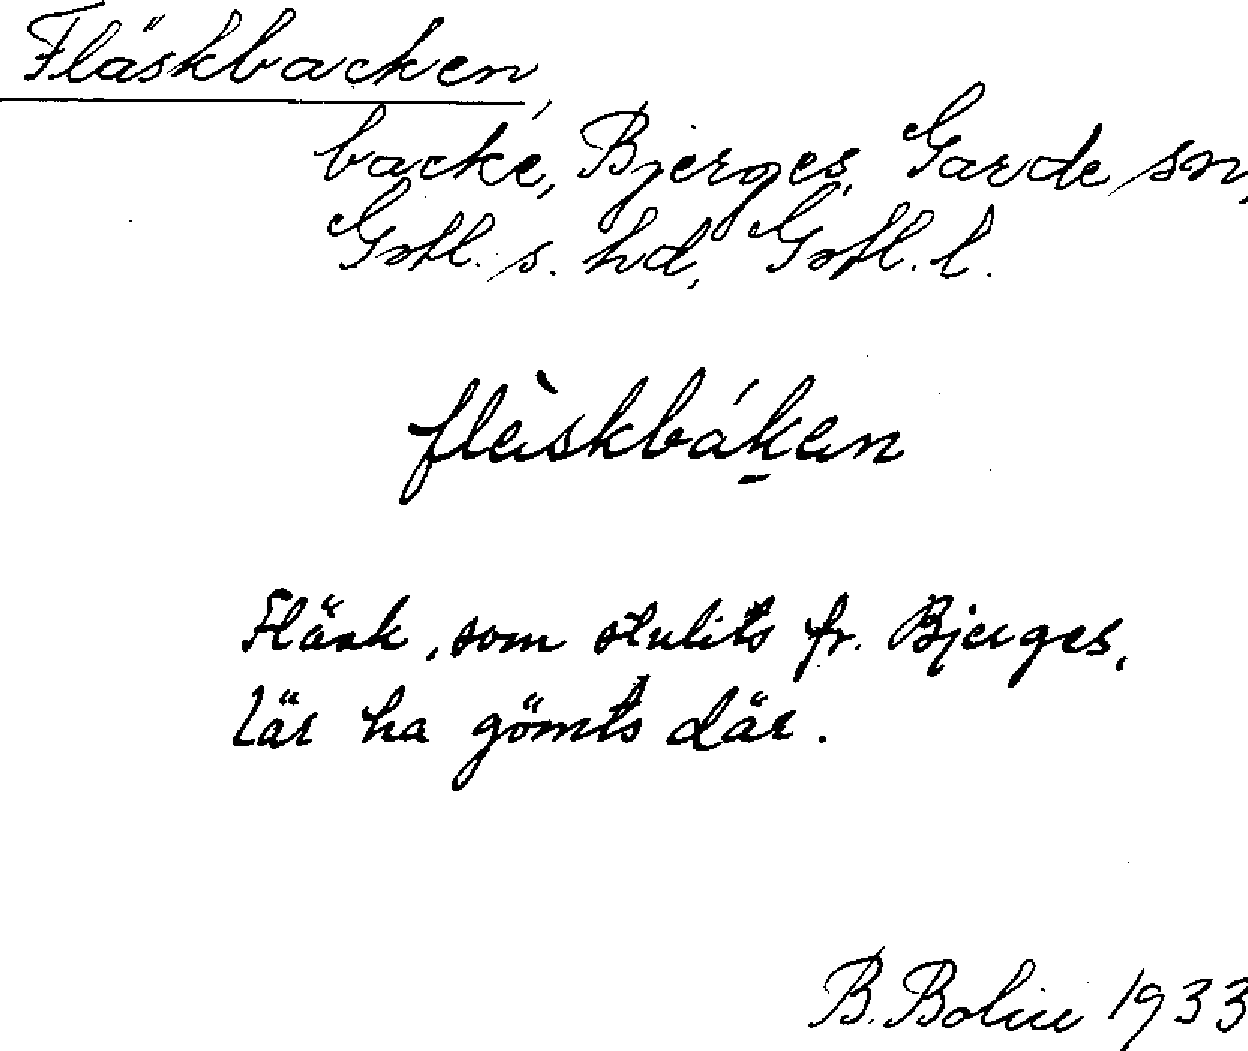 Fläskbacken,
backe, Bjerges, Garde sn,
Gotl. s. hd, Gotl. l.
flàiskbákan
Fläsk, som stulits fr. Bjerges,
lär ha gömts där.
B. Bolin 1933